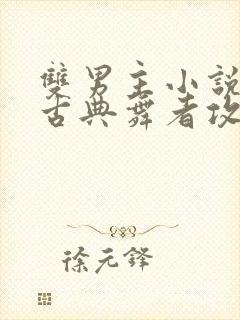 雙男主小說
古典舞者攻
徐元鋒